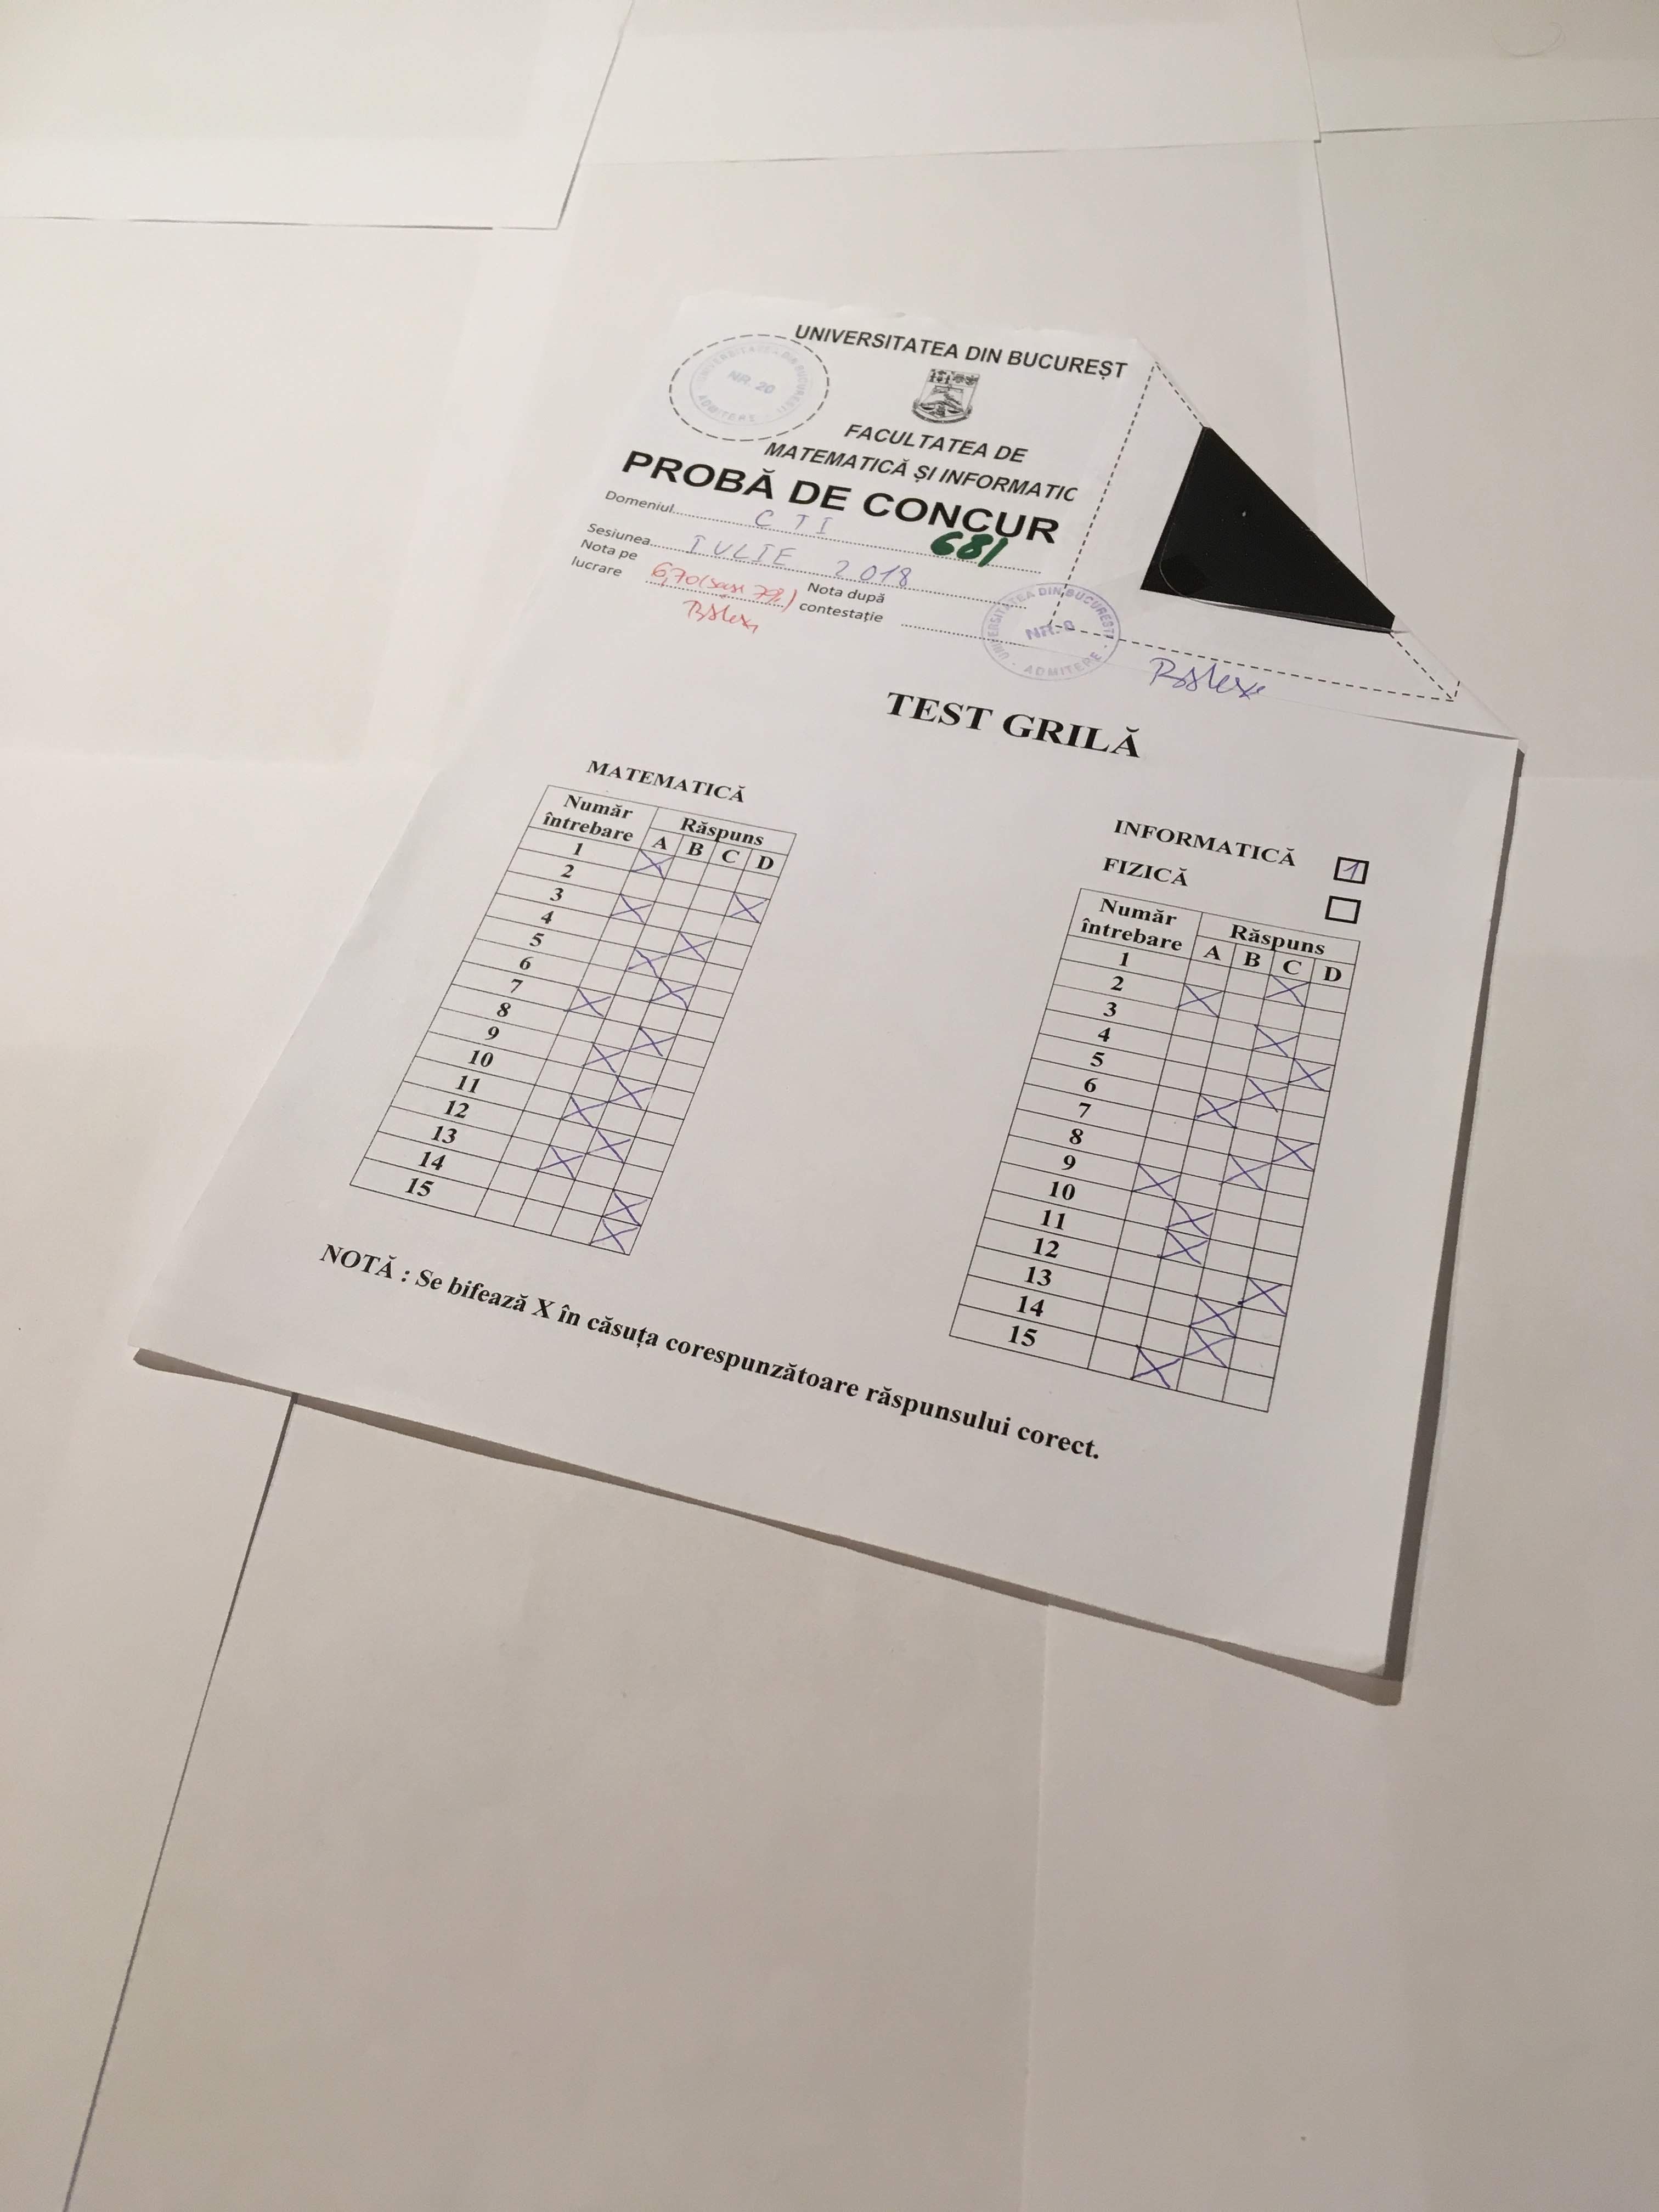 UNIVERSITATEA DIN BUCUREȘT
UNIVERSITATEA DIN BUCUREȘTI
NR. 20
ADMITERE
FACULTATEA DE
MATEMATICĂ ȘI INFORMATIC
PROBĂ DE CONCUR
Domeniul CTI
681
Sesiunea IULIE 2018
Nota pe lucrare 6,70
Nota după contestație
UNIVERSITATEA DIN BUCUREȘTI
ADMITERE
TEST GRILĂ
MATEMATICĂ
Număr întrebare Răspuns
A B C D
1
2
3
4
5
6
7
8
9
10
11
12
13
14
15
INFORMATICĂ 1
FIZICĂ
Număr întrebare Răspuns
A B C D
1
2
3
4
5
6
7
8
9
10
11
12
13
14
15
NOTĂ : Se bifează X în căsuța corespunzătoare răspunsului corect.